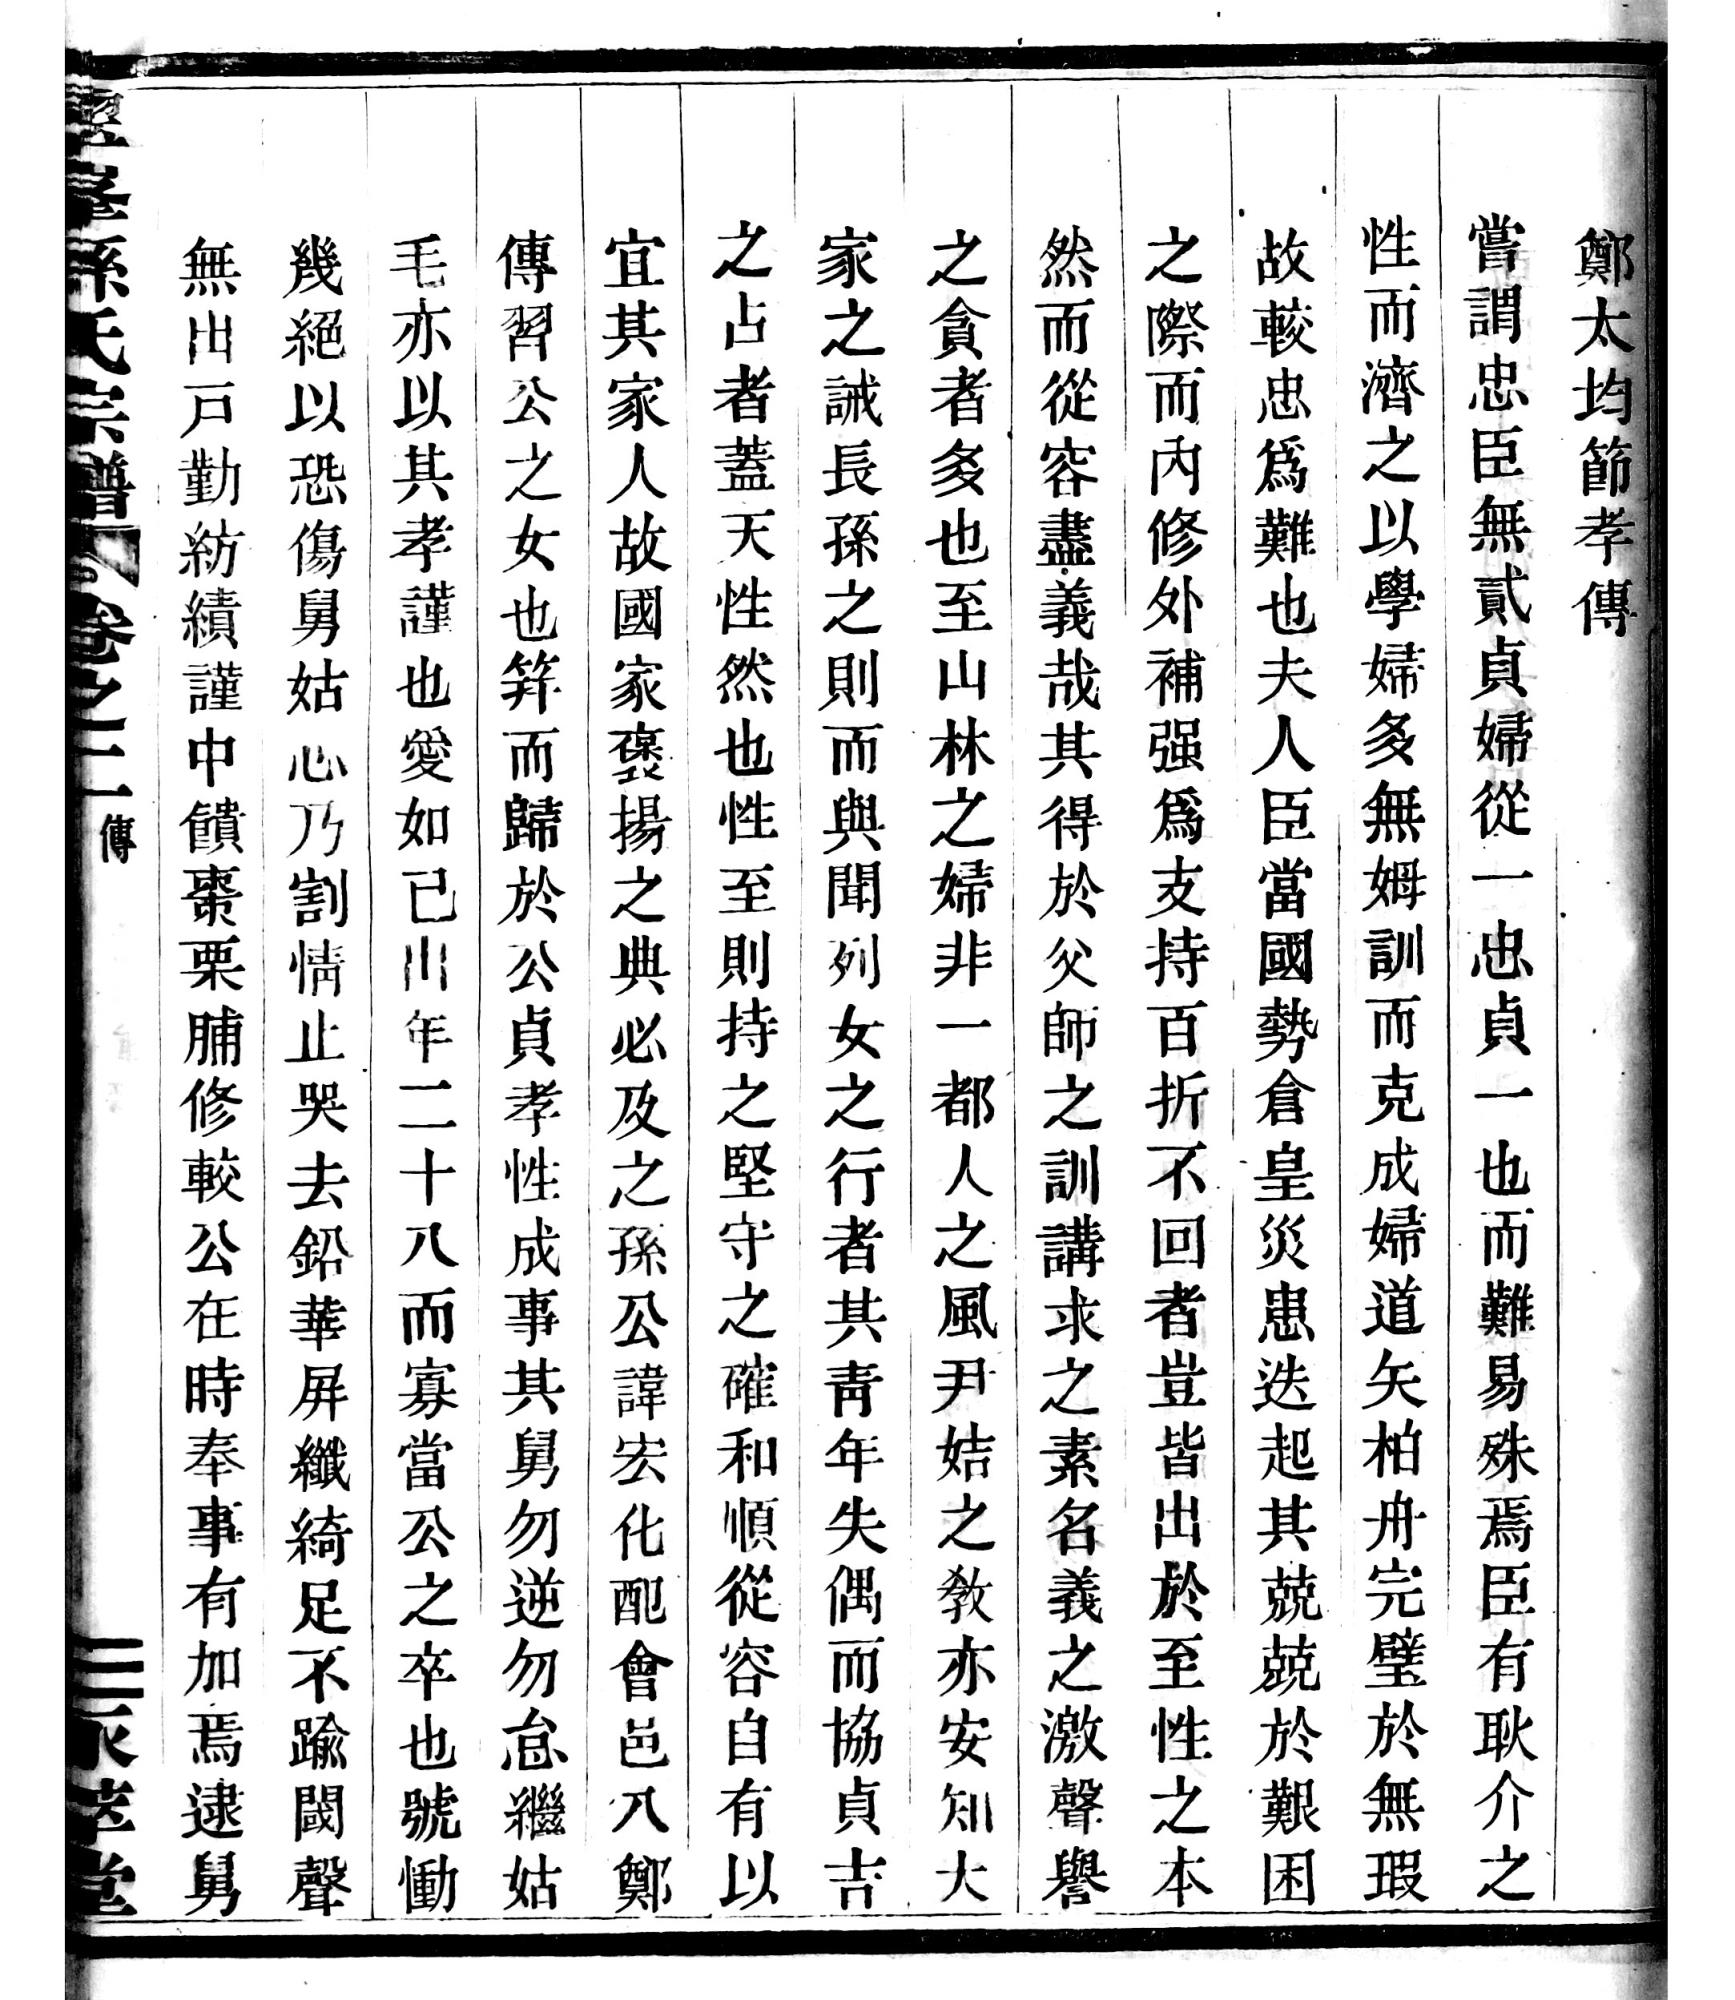 鄭太均節孝傳
嘗謂忠臣無貳貞婦從一忠貞一也而難易殊焉臣有耿介之
性而濟之以學婦多無姆訓而克成婦道矢柏舟完璧於無瑕
故較忠爲難也夫人臣當國勢倉皇災患迭起其兢兢於艱困
之際而內修外補强爲支持百折不回者豈皆出於至性之本
然而從容盡義哉其得於父師之訓講求之素名義之激聲譽
之貪者多也至山林之婦非一都人之風尹姞之敎亦安知大
家之誡長孫之則而與聞列女之行者其靑年失偶而協貞吉
之占者蓋天性然也性至則持之堅守之確和順從容自有以
宜其家人故國家褒揚之典必及之孫公諱宏化配會邑八鄭
傳習公之女也筓而歸於公貞孝性成事其舅勿逆勿怠繼姑
毛亦以其孝謹也愛如已出年二十八而寡當公之卒也號慟
幾絕以恐傷舅姑心乃割情止哭去鉛華屏纖綺足不踰閾聲
無出戸勤紡績謹中饋棗栗脯修較公在時奉事有加焉逮舅
孫氏宗譜
卷之二
傳
二
萃堂